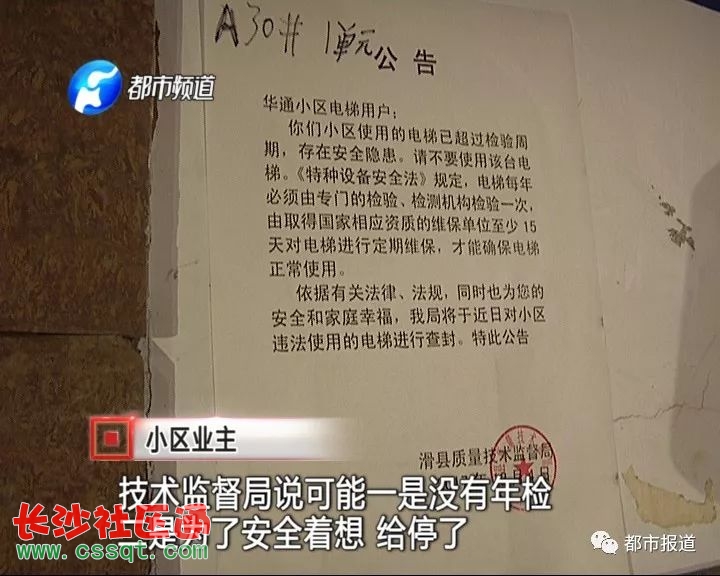 A30# 1单元
公告
都市频道
华通小区电梯用户：
你们小区使用的电梯已超过检验周
期，存在安全隐患。请不要使用该台电
梯。《特种设备安全法》规定，电梯每年
必须由专门的检验、检测机构检验一次，
由取得国家相应资质的维保单位至少 15
天对电梯进行定期维保，才能确保电梯
正常使用。
依据有关法律、法规，同时也为您的
安全和家庭幸福，我局将于近日对小区
违法使用的电梯进行查封。特此公告
滑县质量技术监督局
小区业主
技术监督局说可能一是没有年检
二是为了安全着想 给停了
长沙社区通
www.cssqt.com
都市报道